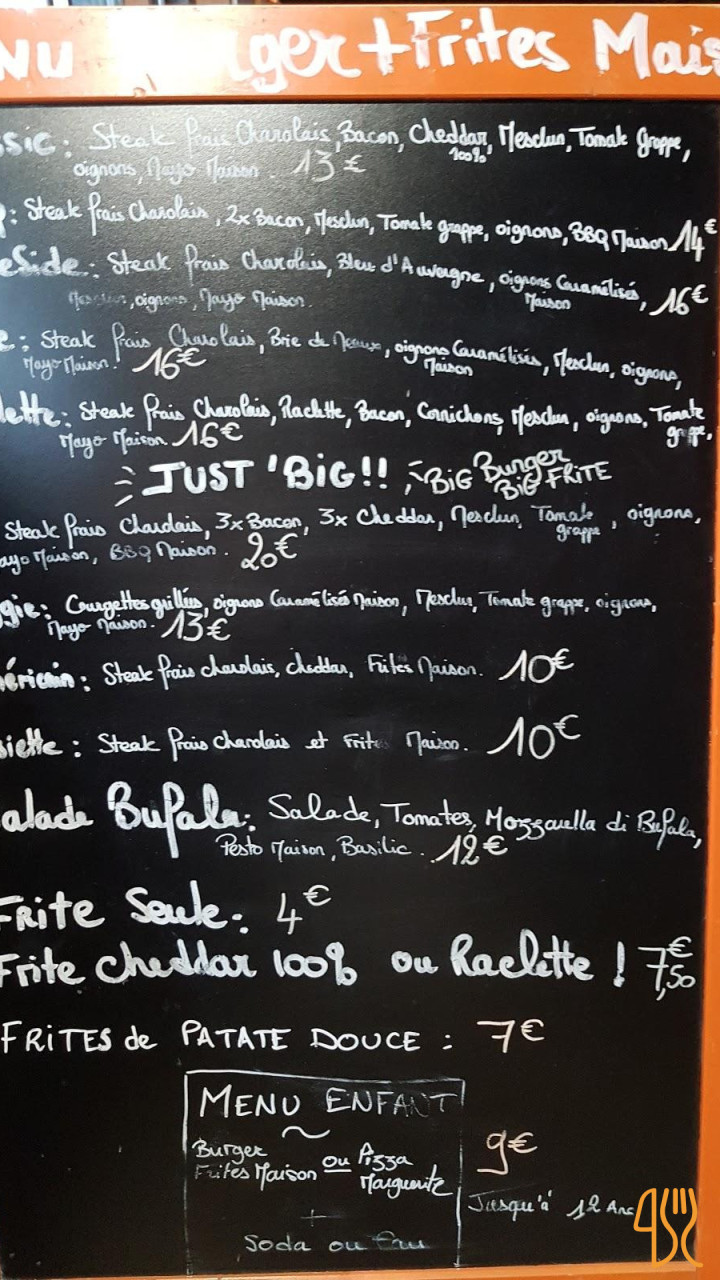 NU ger + Frites Mais
ssic: Steak frais Charolais, Bacon, Cheddar, Mesclun, Tomate grappe,
100%
oignons, Mayo Maison. 13€
: Steak frais Charolais, 2x Bacon, Mesclun, Tomate grappe, oignons, BBQ Maison 14€
eSide: Steak frais Charolais, Bleu d'Auvergne, oignons Caramélisés, 16€
Maison
Mesclun, oignons, Mayo Maison.
e: Steak frais Charolais, Brie de Meaux, oignons Caramélisés, Mesclun, oignons,
Maison
Mayo Maison. 16€
lette: Steak frais Charolais, Raclette, Bacon, Cornichons, Mesclun, oignons, Tomate
grappe,
Mayo Maison. 16€
JUST 'BiG!! BiG Burger
BiG FRITE
Steak frais Charolais, 3x Bacon, 3x Cheddar, Mesclun, Tomate grappe, oignons,
ayo Maison, BBQ Maison. 20€
ggie: Courgettes grillées, oignons Caramélisés Maison, Mesclun, Tomate grappe, oignons,
Mayo Maison. 13€
éricain: Steak frais charolais, cheddar, Frites Maison. 10€
siette: Steak frais charolais et Frite Maison. 10€
alade Bufala: Salade, Tomates, Mozzarella di Bufala,
Pesto Maison, Basilic. 12€
FRite Seule: 4€
Frite cheddar 100% ou Raclette ! 7,50€
FRiTES de PATATE DOUCE : 7€
MENU ENFANT
Burger
Frites Maison ou Pizza
Marguerite
9€
Jusqu'à 12 Ans
+
Soda ou Eau